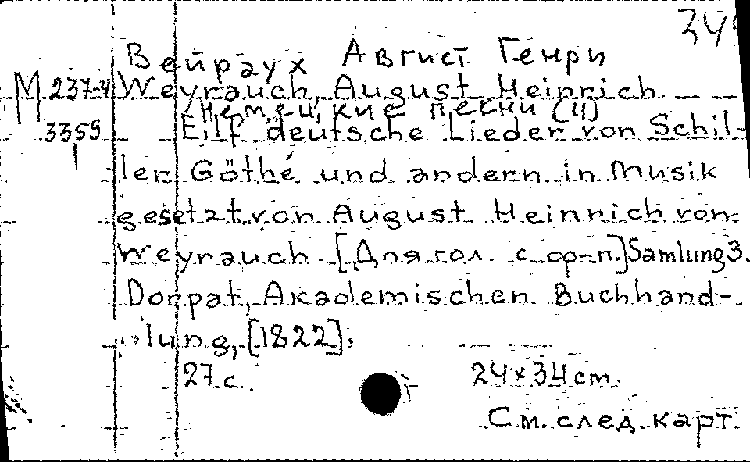 Вейраух Август Генри
М 237-4 Weyrauch, August Heinrich
/Немецкие песни (11)
3355 Eilf deutsche Lieder von Schil-
ler Göthé und andern in Musik
gesetzt von August Heinrich von
Weyrauch. [Для гол. с ф-п.] Samlung 3.
Dorpat, Akademischen Buchhand-
lung, [1822].
27 с. 24×34 cm.
См. след. карт.